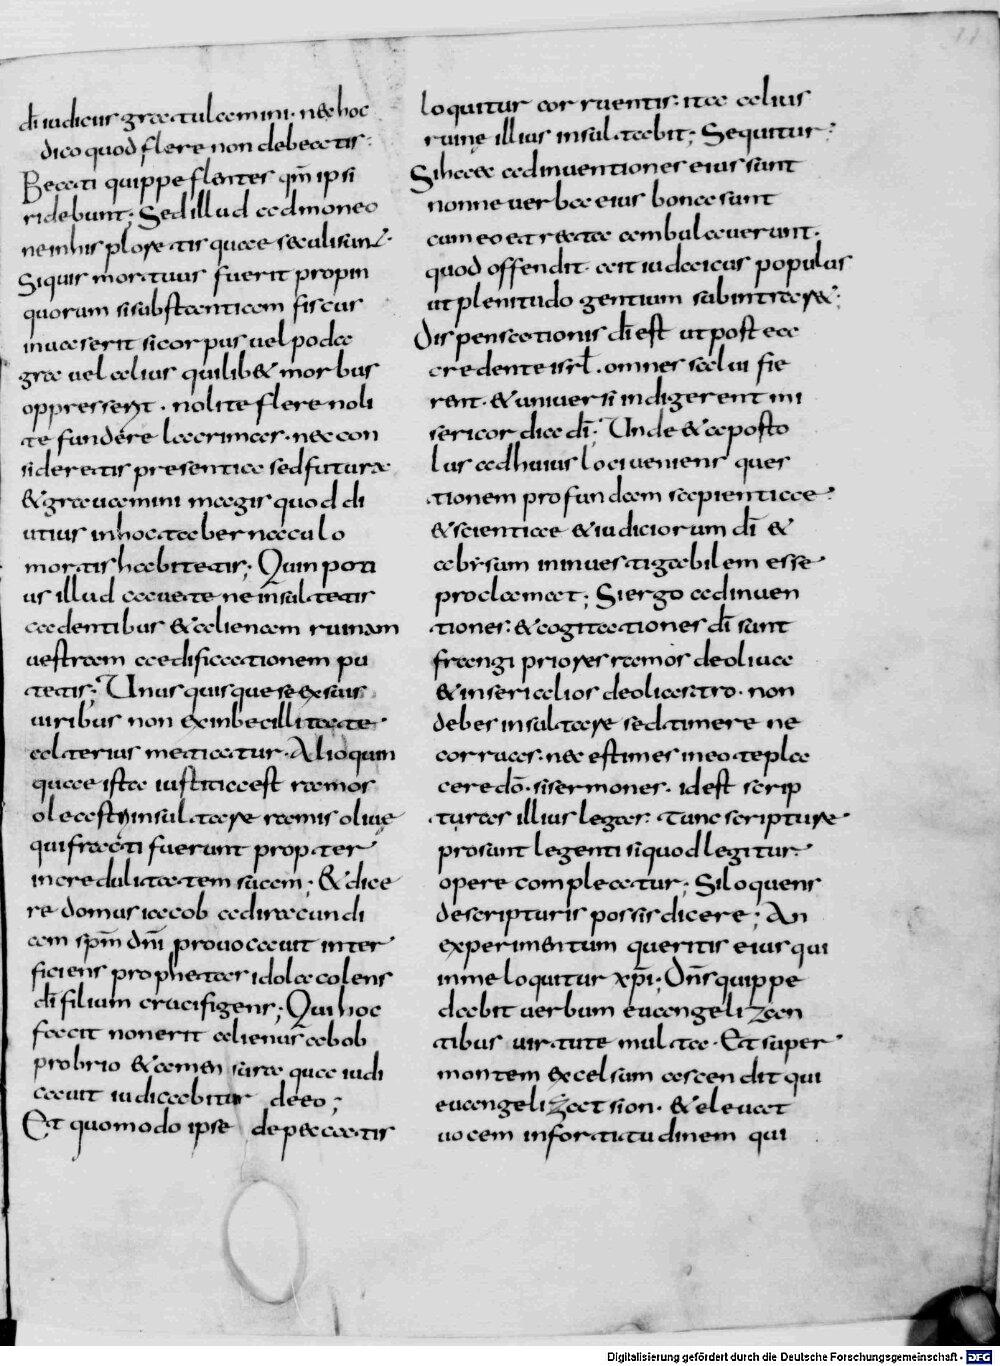 di iudicius gratulamini· n&hoc
dico quod flere non debeatis:
Beati quippe flentes qm̄ ipsi
ridebunt; Sed illud admoneo
ne inhis ploretis quae saeculi sunt·
Siquis mortuus fuerit propin
quorum si substantiam fiscus
inuaserit si corpus uel poda
gra uel alius quilib& morbus
oppresserit· nolite flere noli
te fundere lacrimas· nec con
sideretis presentia sed futura
& gravamini magis quod di
utius inhoc tabernaculo
mortis habitetis; Quin poti
us illud cauete ne insultetis
cadentibus & alienam ruinam
uestram aedificationem pu
tetis; Unus quisque se exsuis
uiribus non eximbecillitate
alterius metiatur· Alioquin
quae ista iustitia est ramos
oleastri insultare ramis oliue
qui fracti fuerunt propter
incredulitatem suam; & dice
re domus iacob adiracundi
am spm̄ dn̄i prouocauit inter
ficiens prophetas idola colens
dī filium crucifigens; Qui hoc
facit non erit alienus abob
probrio & amen sura qua iudi
cauit iudicabitur deeo;
Et quomodo ipse depeccatis
loquitur corruentis· ita alius
ruinę illius insultabit; Sequitur:
Si haec adinuentiones eius sunt
nonne uerba eius bona sunt
cum eo et recta ambulauerunt·
quod offendit· ait iudaicus populus
ut plenitudo gentium subintrar&;
Dispensationis dī est ut postea
credente isrl̄· omnes salui fie
rent· & uniuersi indigerent mi
sericordia dī; Unde & aposto
lus adhuius loci ueniens ques
tionem profundam sapientiae:
& scientiae & iudiciorum dī &
abyssum ininuestigabilem esse
proclamat; Si ergo adinuen
tiones: & cogitationes dī sunt
frangi priores ramos deoliua
& inseri alios deoliastro· non
debes insultare sed timere ne
corruas· nec estimes ineo te pla
cere dō· si sermones· idest scrip
turas illius legas: tunc scripture
prosunt legenti si quod legitur·
opere compleatur; Si loquens
descripturis possis dicere; An
experimentum queritis eius qui
inme loquitur xp̄i; Dn̄s quippe
dabit uerbum euangelizan
tibus uirtute multa· Et super
montem excelsum ascendit qui
euangelizat sion· & eleuat
uocem infortitudinem qui
Digitalisierung gefördert durch die Deutsche Forschungsgemeinschaft - DFG